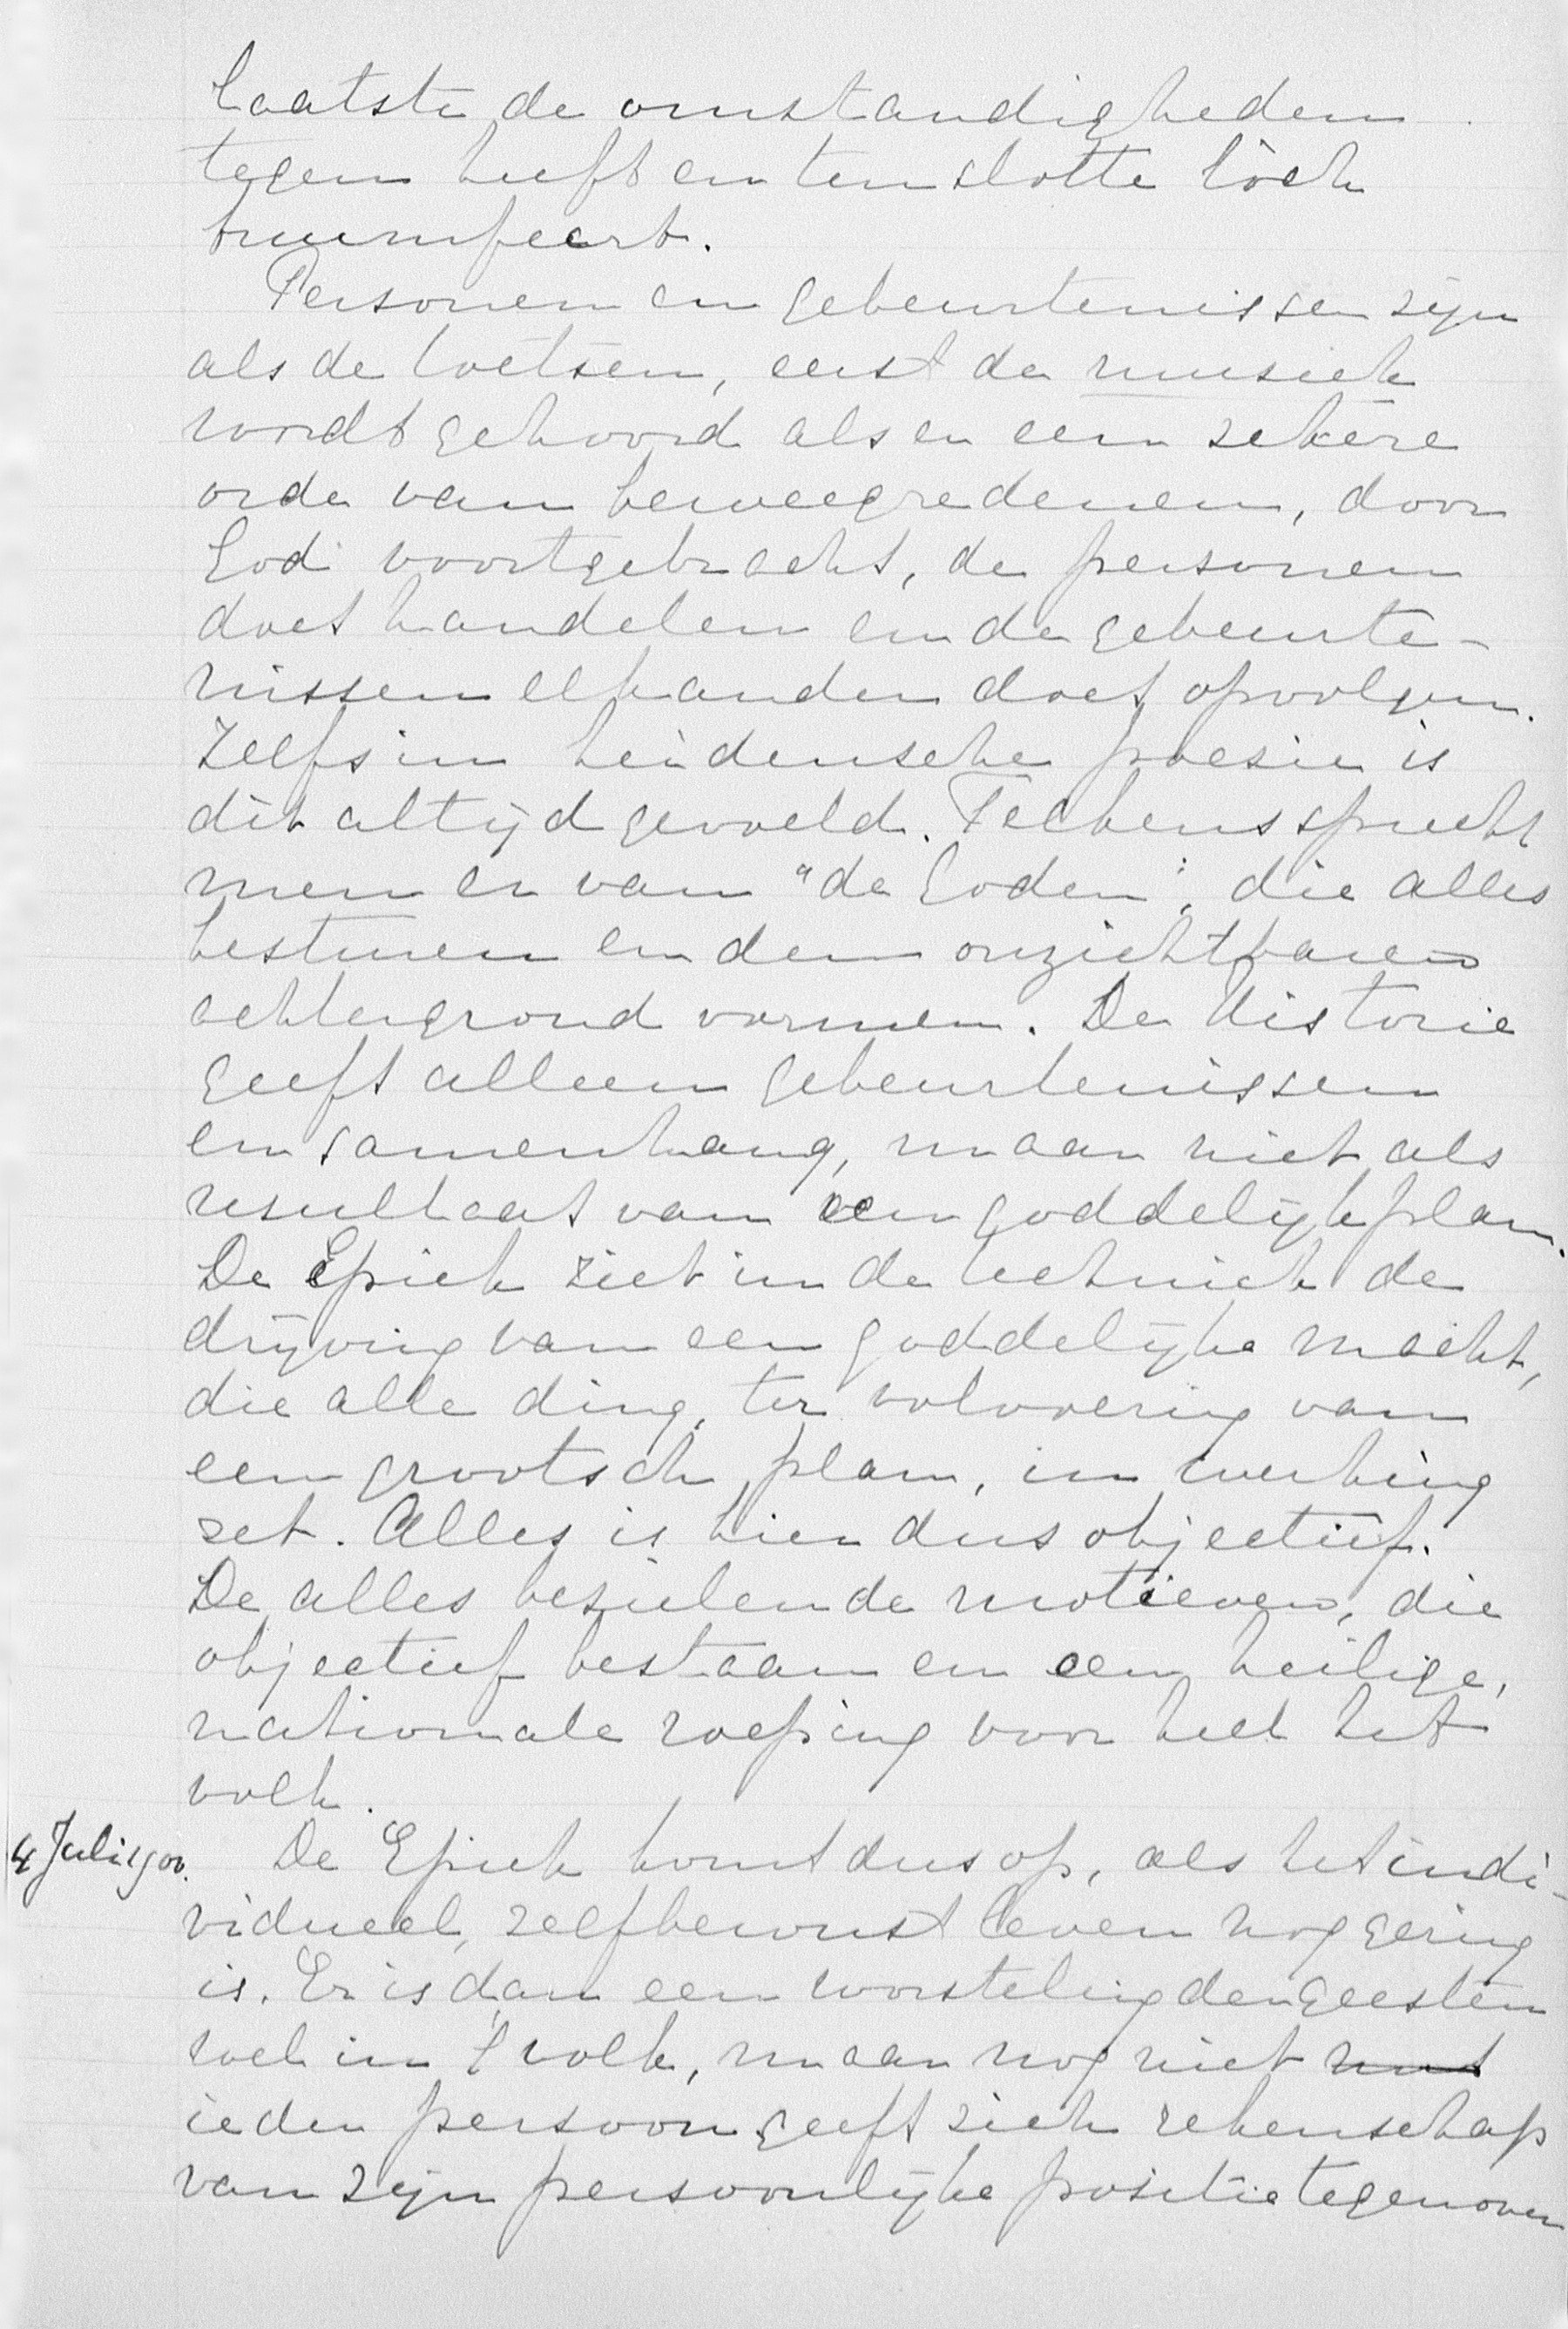 laatste de omstandigheden
tegen heeft en ten slotte tòch
triumfeert.
Personen en gebeurtenissen zijn
als de toetsen, eerst de musiek
wordt gehoord als er een zekere
orde van beweegredenen, door
God voortgebracht, de personen
doet handelen en de gebeurte-
nissen elkander doet opvolgen.
Zelfs in heidensche poesie is
dit altijd gevoeld. Telkens spreekt
men er van "de Goden", die alles
besturen en den onzichtbaren
achtergrond vormen. De Historie
geeft alleen gebeurtenissen
en samenhang, maar niet als
resultaat van een goddelijk plan.
De Epiek ziet in de techniek de
drijving van een goddelijke macht,
die alle ding, ter volvoering van
een grootsch plan, in werking
zet. Alles is hier dus objectief.
De alles bezielende motieven, die
objectief bestaan en een heilige,
nationale roeping voor heel het
volk.
4 Juli 1900. De Epiek komt dus op, als het indi-
vidueel, zelfbewust leven nog gering
is. Er is dan een worsteling der geesten
wel in 't volk, maar nog niet
ieder persoon geeft zich rekenschap
van zijn persoonlijke positie tegenover